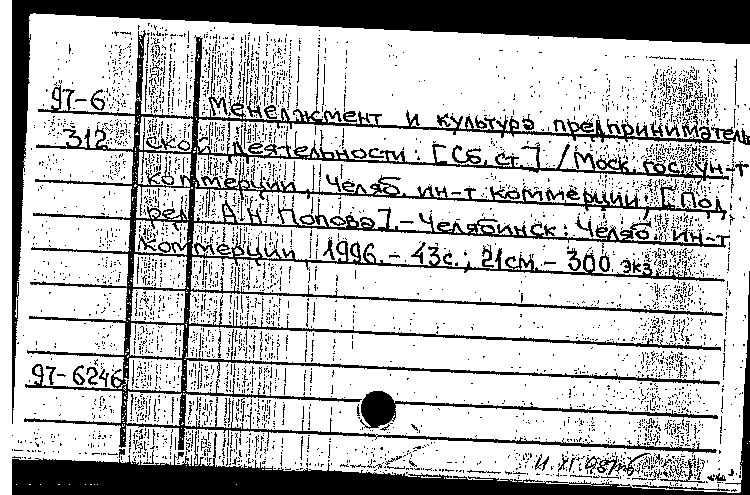 97-6 Менеджмент и культура предприниматель
312 ской деятельности: [Сб. ст.] / Моск. гос. ун-т
коммерции, Челяб. ин-т коммерции; [Под
ред. А.Н. Попова]. - Челябинск: Челяб. ин-т
коммерции, 1996. - 43с.; 21см. - 300 экз
97-6246